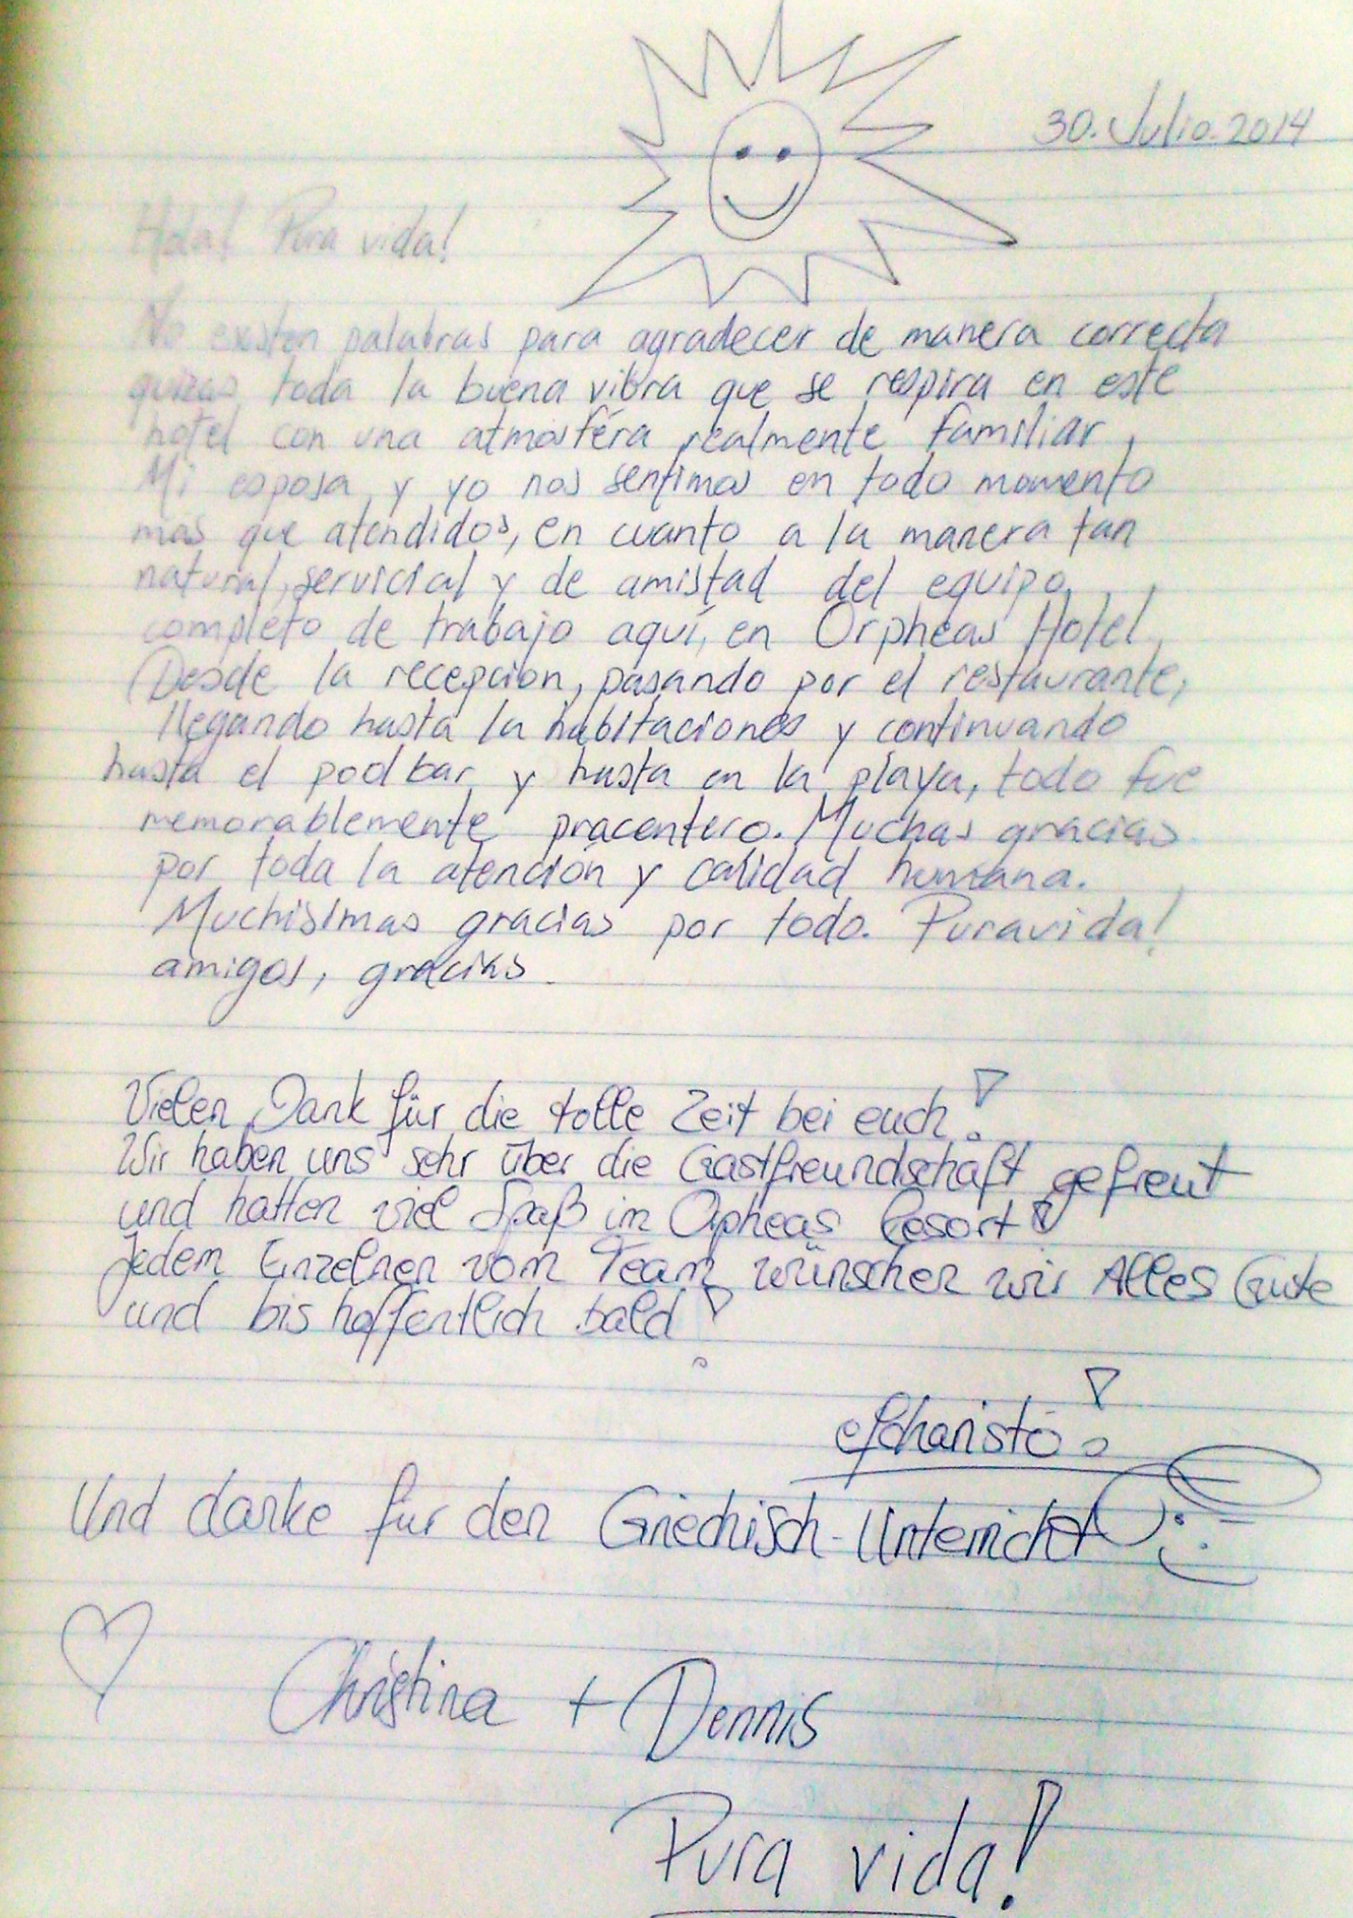 30. Julio. 2014
Hola! Pura vida!
No existen palabras para agradecer de manera correcta
quizas toda la buena vibra que se respira en este
hotel con una atmósfera realmente familiar,
Mi esposa y yo nos sentimos en todo momento
mas que atendidos, en cuanto a la manera tan
natural, servicial y de amistad del equipo
completo de trabajo aquí, en Orpheas Hotel,
Desde la recepcion, pasando por el restaurante,
llegando hasta la habitaciones y continuando
hasta el pool bar y hasta en la playa, todo fue
memorablemente pracentero. Muchas gracias
por toda la atención y calidad humana.
Muchisimas gracias por todo. Puravida!
amigos, gracias.
Vielen Dank für die tolle Zeit bei euch!
Wir haben uns sehr über die Gastfreundschaft gefreut
und hatten viel Spaß im Opheas Resort!
Jedem Einzelnen vom Team wünschen wir Alles Gute
und bis hoffentlich bald!
efcharistó!
Und danke für den Griechisch-Unterricht
Christina + Dennis
Pura vida!